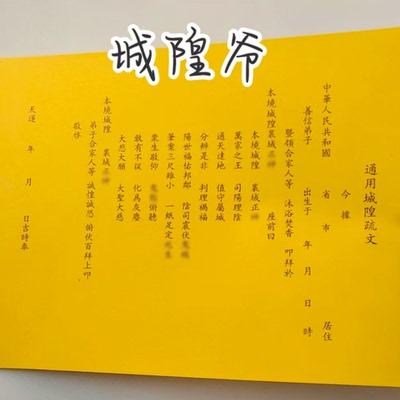 城隍爷
通用城隍疏文
今據
中華人民共和國 省 市 居住
善信弟子 出生于 年 月 日 時
暨領合家人等 沐浴焚香 叩拜於
本境城隍 襄城 座前曰
本境城隍 襄城
萬家之王 司陽理陰
通天達地 值守屬城
分辨是非 判理禍福
陽世福佑邦鄰 陰司震伏
筆案三尺雖小 一紙足定
眾生敬仰 俯聽
敢有不服 化為灰塵
大悲大願 大聖大慈
本境城隍 襄城
弟子合家人等 誠惶誠恐 俯伏百拜上叩
敬啓
天運 年 月 日吉時奉